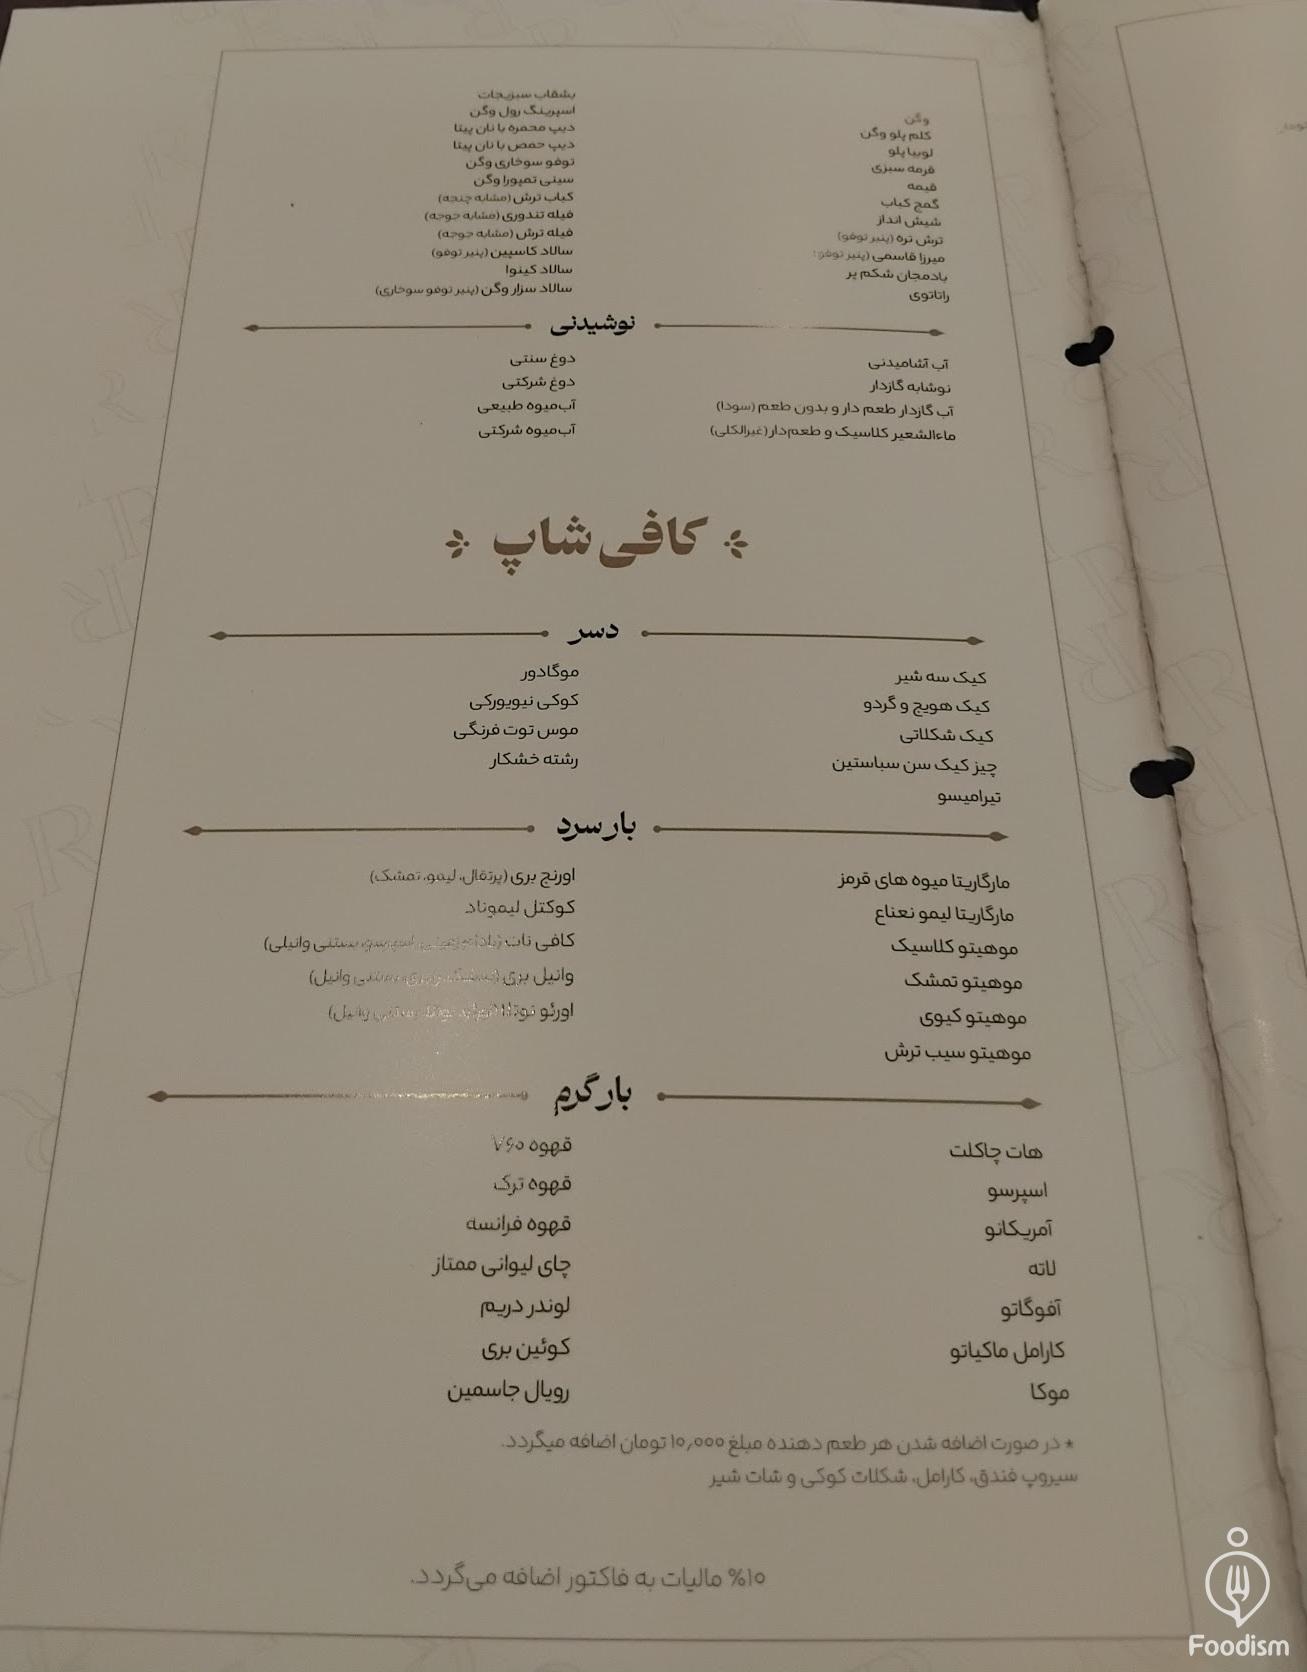 وگن
کلم پلو وگن
لوبیا پلو
قرمه سبزی
قیمه
گمج کباب
شیش انداز
ترش تره (پنیر توفو)
میرزا قاسمی (پنیر توفو)
بادمجان شکم پر
راتاتوی
بشقاب سبزیجات
اسپرینگ رول وگن
دیپ محمره با نان پیتا
دیپ حمص با نان پیتا
توفو سوخاری وگن
سینی تمپورا وگن
کباب ترش (مشابه چنجه)
فیله تندوری (مشابه جوجه)
فیله ترش (مشابه جوجه)
سالاد کاسپین (پنیر توفو)
سالاد کینوا
سالاد سزار وگن (پنیر توفو سوخاری)
نوشیدنی
آب آشامیدنی
نوشابه گازدار
آب گازدار طعم دار و بدون طعم (سودا)
ماءالشعیر کلاسیک و طعم‌دار (غیرالکلی)
دوغ سنتی
دوغ شرکتی
آب‌میوه طبیعی
آب‌میوه شرکتی
کافی شاپ
دسر
کیک سه شیر
کیک هویج و گردو
کیک شکلاتی
چیز کیک سن سباستین
تیرامیسو
موگادور
کوکی نیویورکی
موس توت فرنگی
رشته خشکار
بار سرد
مارگاریتا میوه های قرمز
مارگاریتا لیمو نعناع
موهیتو کلاسیک
موهیتو تمشک
موهیتو کیوی
موهیتو سیب ترش
اورنج بری (پرتقال، لیمو، تمشک)
کوکتل لیموناد
کافی نات (بادام زمینی، اسپرسو، بستنی وانیلی)
وانیل بری (بستنی وانیل)
اورئو نوتلا (بستنی وانیل)
بار گرم
هات چاکلت
اسپرسو
آمریکانو
لاته
آفوگاتو
کارامل ماکیاتو
موکا
قهوه V۶۰
قهوه ترک
قهوه فرانسه
چای لیوانی ممتاز
لوندر دریم
کوئین بری
رویال جاسمین
* در صورت اضافه شدن هر طعم دهنده مبلغ ۱۰,۰۰۰ تومان اضافه میگردد.
سیروپ فندق، کارامل، شکلات کوکی و شات شیر
۱۰% مالیات به فاکتور اضافه می‌گردد.
Foodism